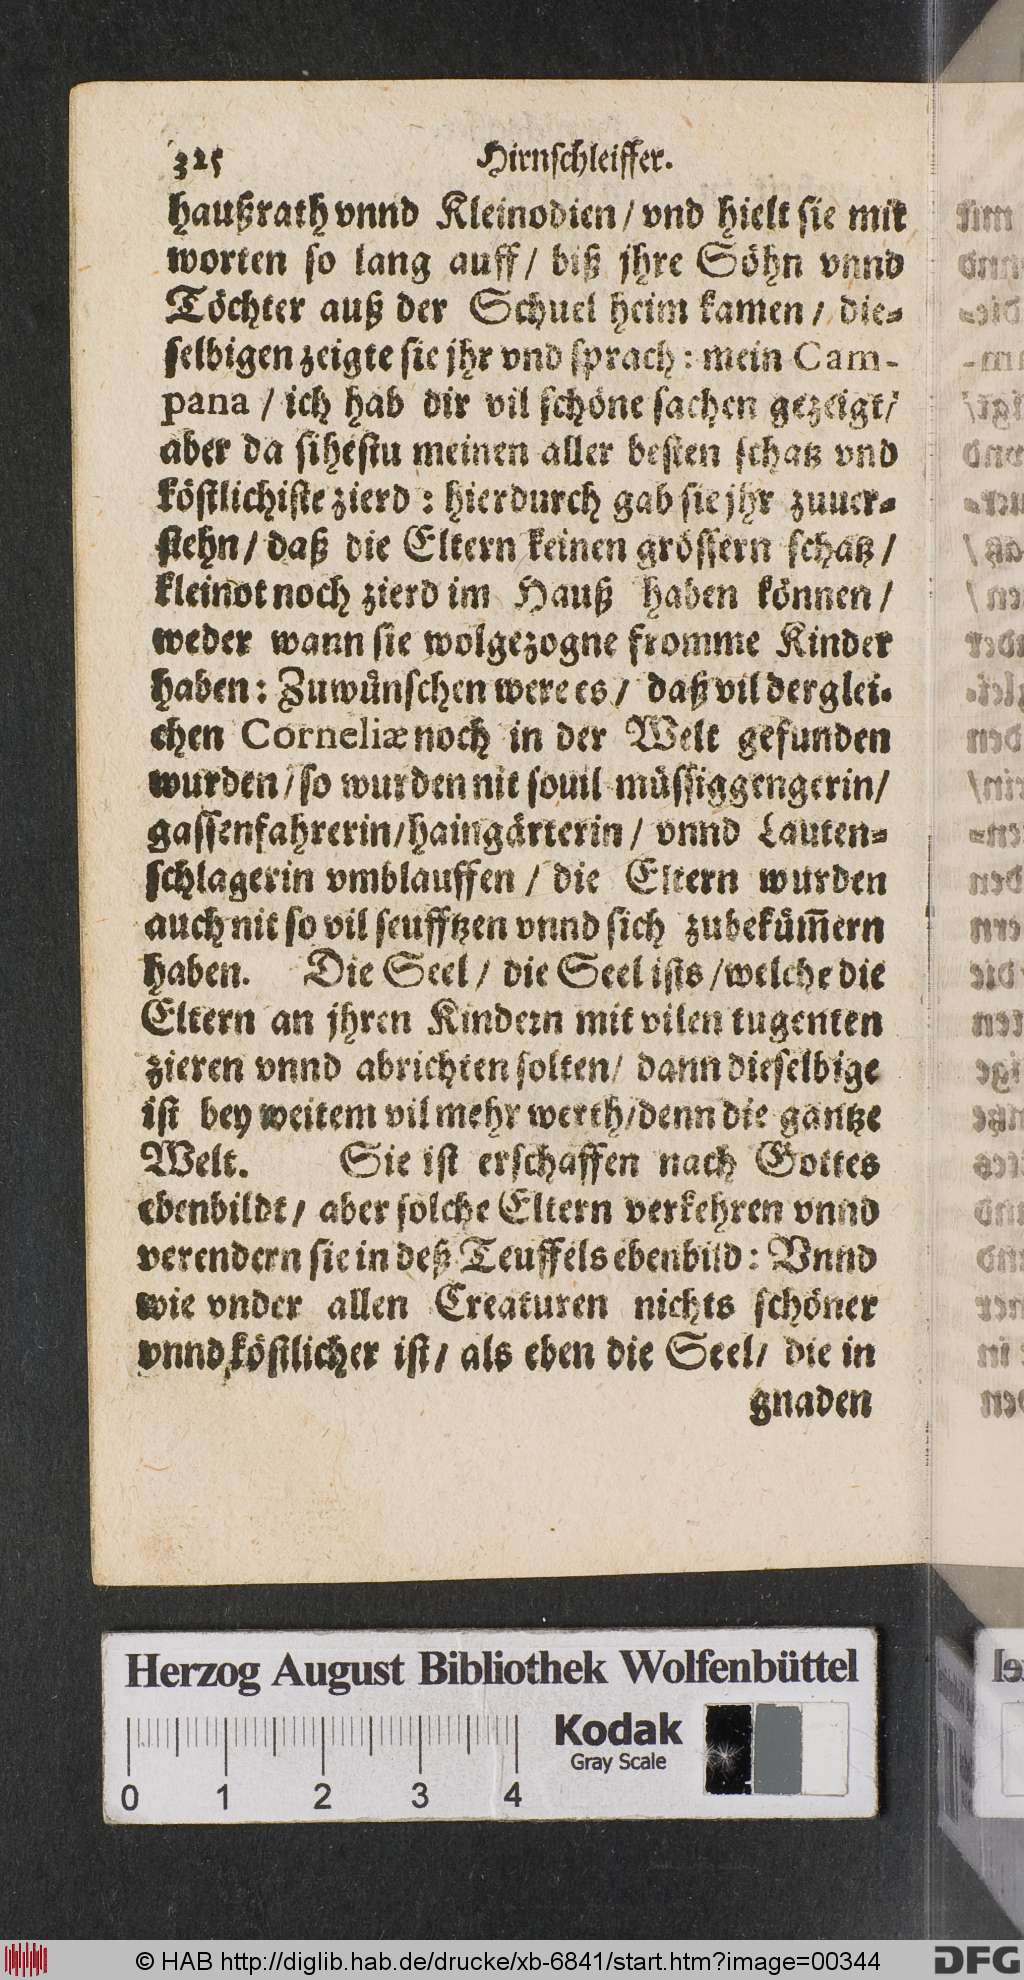 325 Hirnschleiffer.
haußrath vnnd Kleinodien / vnd hielt sie mit
worten so lang auff / biß jhre Söhn vnnd
Töchter auß der Schuel heim kamen / die-
selbigen zeigte sie jhr vnd sprach : mein Cam-
pana / ich hab dir vil schöne sachen gezeigt /
aber da sihestu meinen aller besten schatz vnd
köstlichiste zierd : hierdurch gab sie jhr zuuer-
stehn / daß die Eltern keinen grössern schatz /
kleinot noch zierd im Hauß haben können /
weder wann sie wolgezogne fromme Kinder
haben : Zuwünschen were es / daß vil derglei-
chen Corneliæ noch in der Welt gefunden
wurden / so wurden nit souil müssiggengerin /
gassenfahrerin / haingärterin / vnnd Lauten-
schlagerin vmblauffen / die Eltern wurden
auch nit so vil seufftzen vnnd sich zubekům̃ern
haben. Die Seel / die Seel ists / welche die
Eltern an jhren Kindern mit vilen tugenten
zieren vnnd abrichten solten / dann dieselbige
ist bey weitem vil mehr werth / denn die gantze
Welt. Sie ist erschaffen nach Gottes
ebenbildt / aber solche Eltern verkehren vnnd
verendern sie in deß Teuffels ebenbild : Vnnd
wie vnder allen Creaturen nichts schöner
vnnd köstlicher ist / als eben die Seel / die in
gnaden
Herzog August Bibliothek Wolfenbüttel
Kodak
Gray Scale
0 1 2 3 4
© HAB http://diglib.hab.de/drucke/xb-6841/start.htm?image=00344
DFG